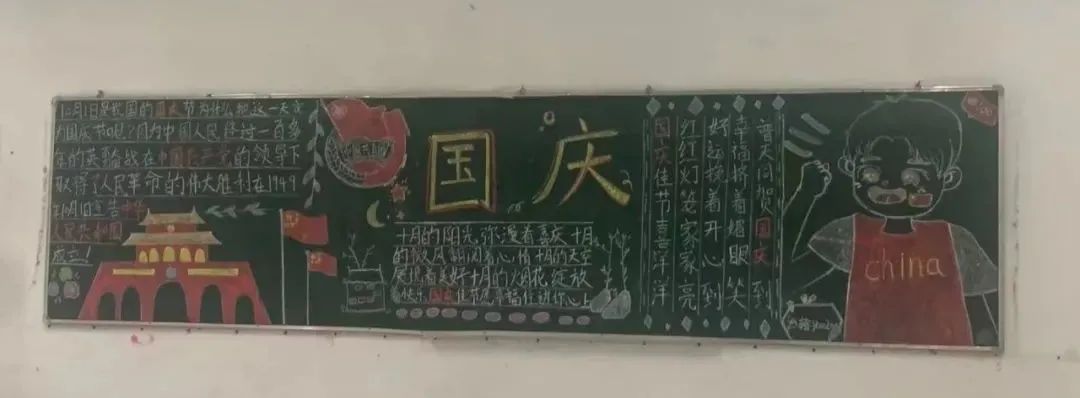 10月1日是我国的国庆节为什么把这一天定
为国庆节呢?因为中国人民经过一百多
年的英 在中国共产党的领导下
取得了人民革命的伟大胜利在1949
年10月1日宣告中华
人民共和国
成立!
国庆
十月的阳光,弥漫着喜庆十月
的微风翻阅着心情十月的天空
展现着美好十月的烟花绽放
快乐国庆佳节愿幸福住进你心上
国庆佳节喜洋洋
红红灯笼家家亮
好运挽着开心到
幸福挤着眼笑
普天同贺国庆到
china